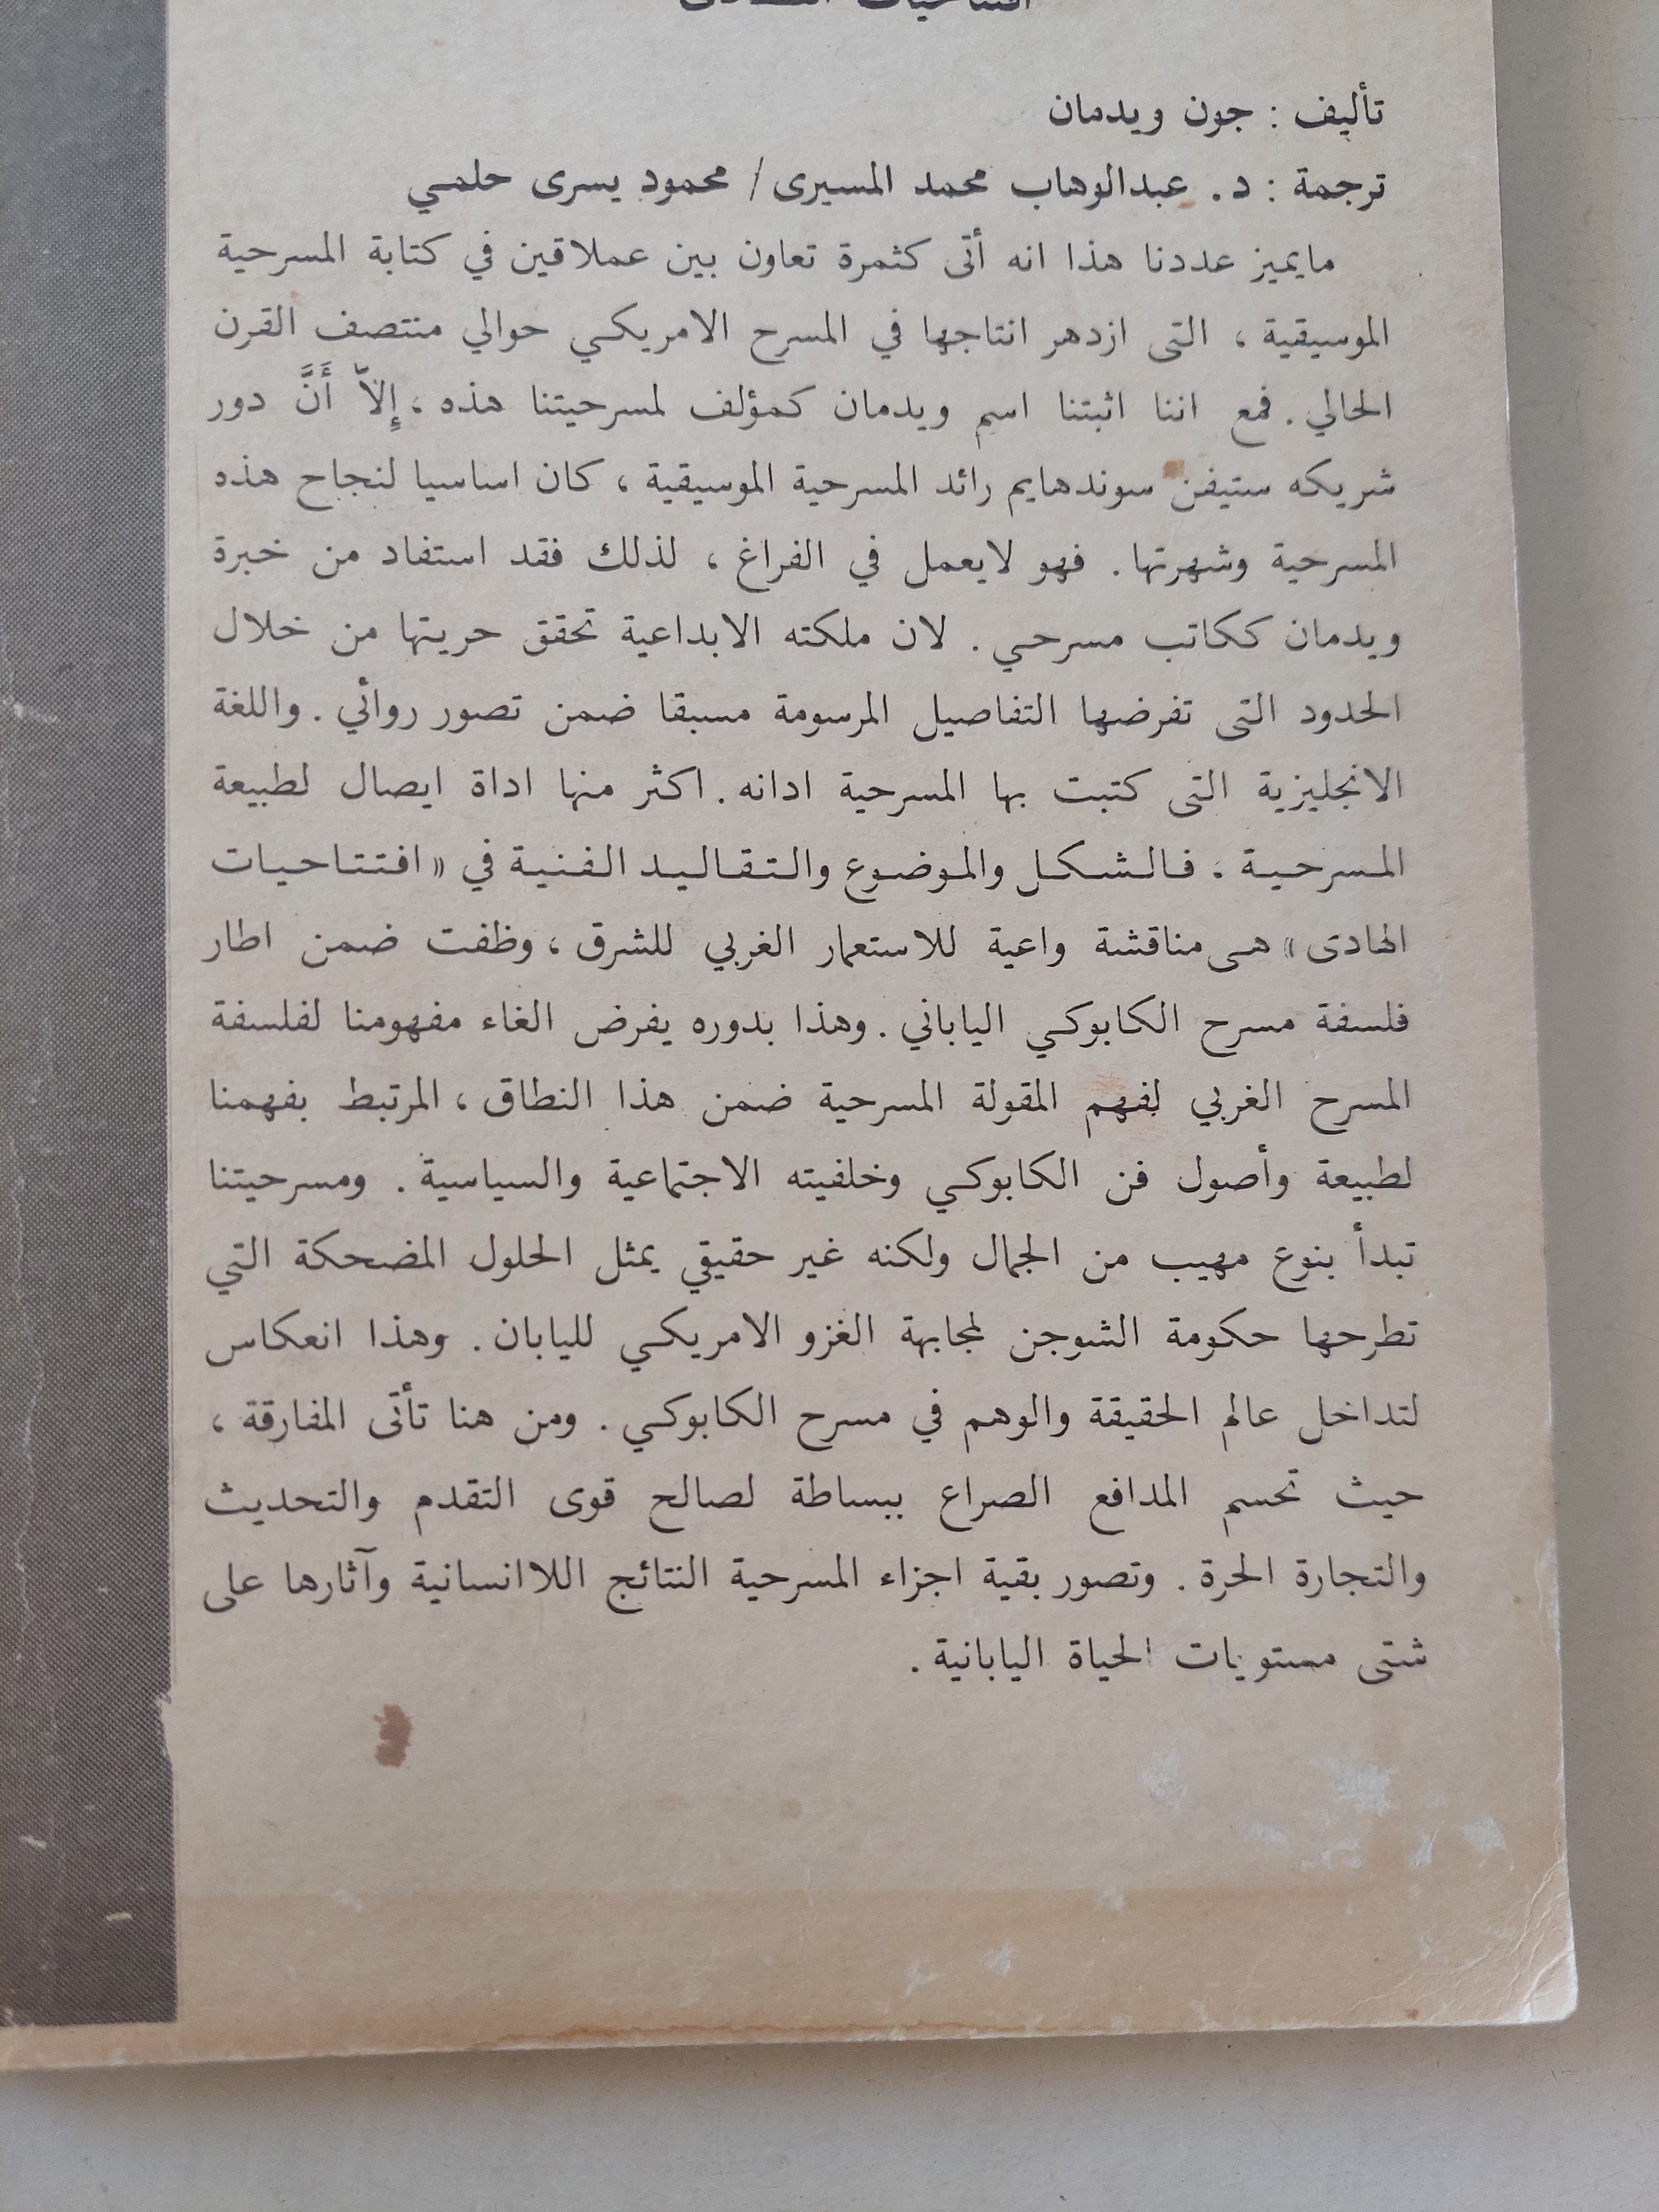 تأليف : جون ويدمان
ترجمة : د . عبدالوهاب محمد المسيرى / محمود يسرى حلمي
مايميز عددنا هذا انه أتى كثمرة تعاون بين عملاقين في كتابة المسرحية
الموسيقية ، التى ازدهر انتاجها في المسرح الامريكي حوالي منتصف القرن
الحالي . فمع اننا اثبتنا اسم ويدمان كمؤلف لمسرحيتنا هذه ، إِلاّ أَنَّ دور
شريكه ستيفن سوندهايم رائد المسرحية الموسيقية ، كان اساسيا لنجاح هذه
المسرحية وشهرتها . فهو لايعمل في الفراغ ، لذلك فقد استفاد من خبرة
ويدمان ككاتب مسرحي . لان ملكته الابداعية تحقق حريتها من خلال
الحدود التى تفرضها التفاصيل المرسومة مسبقا ضمن تصور روائي . واللغة
الانجليزية التى كتبت بها المسرحية ادانه . اكثر منها اداة ايصال لطبيعة
المسرحية . فالشكل والموضوع والتقاليد الفنية في « افتتاحيات
الهادى » هى مناقشة واعية للاستعمار الغربي للشرق ، وظفت ضمن اطار
فلسفة مسرح الكابوكي الياباني . وهذا بدوره يفرض الغاء مفهومنا لفلسفة
المسرح الغربي لفهم المقولة المسرحية ضمن هذا النطاق ، المرتبط بفهمنا
لطبيعة وأصول فن الكابوكي وخلفيته الاجتماعية والسياسية . ومسرحيتنا
تبدأ بنوع مهيب من الجمال ولكنه غير حقيقي يمثل الحلول المضحكة التي
تطرحها حكومة الشوجن لمجابهة الغزو الامريكي لليابان . وهذا انعكاس
لتداخل عالم الحقيقة والوهم في مسرح الكابوكي . ومن هنا تأتى المفارقة ،
حيث تحسم المدافع الصراع ببساطة لصالح قوى التقدم والتحديث
والتجارة الحرة . وتصور بقية اجزاء المسرحية النتائج اللاانسانية وآثارها على
شتى مستويات الحياة اليابانية .